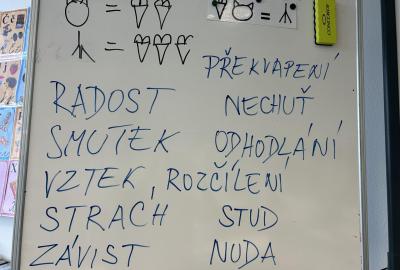 PŘEKVAPENÍ
RADOST NECHUŤ
SMUTEK ODHODLÁNÍ
VZTEK, ROZČÍLENÍ
STRACH STUD
ZÁVIST NUDA